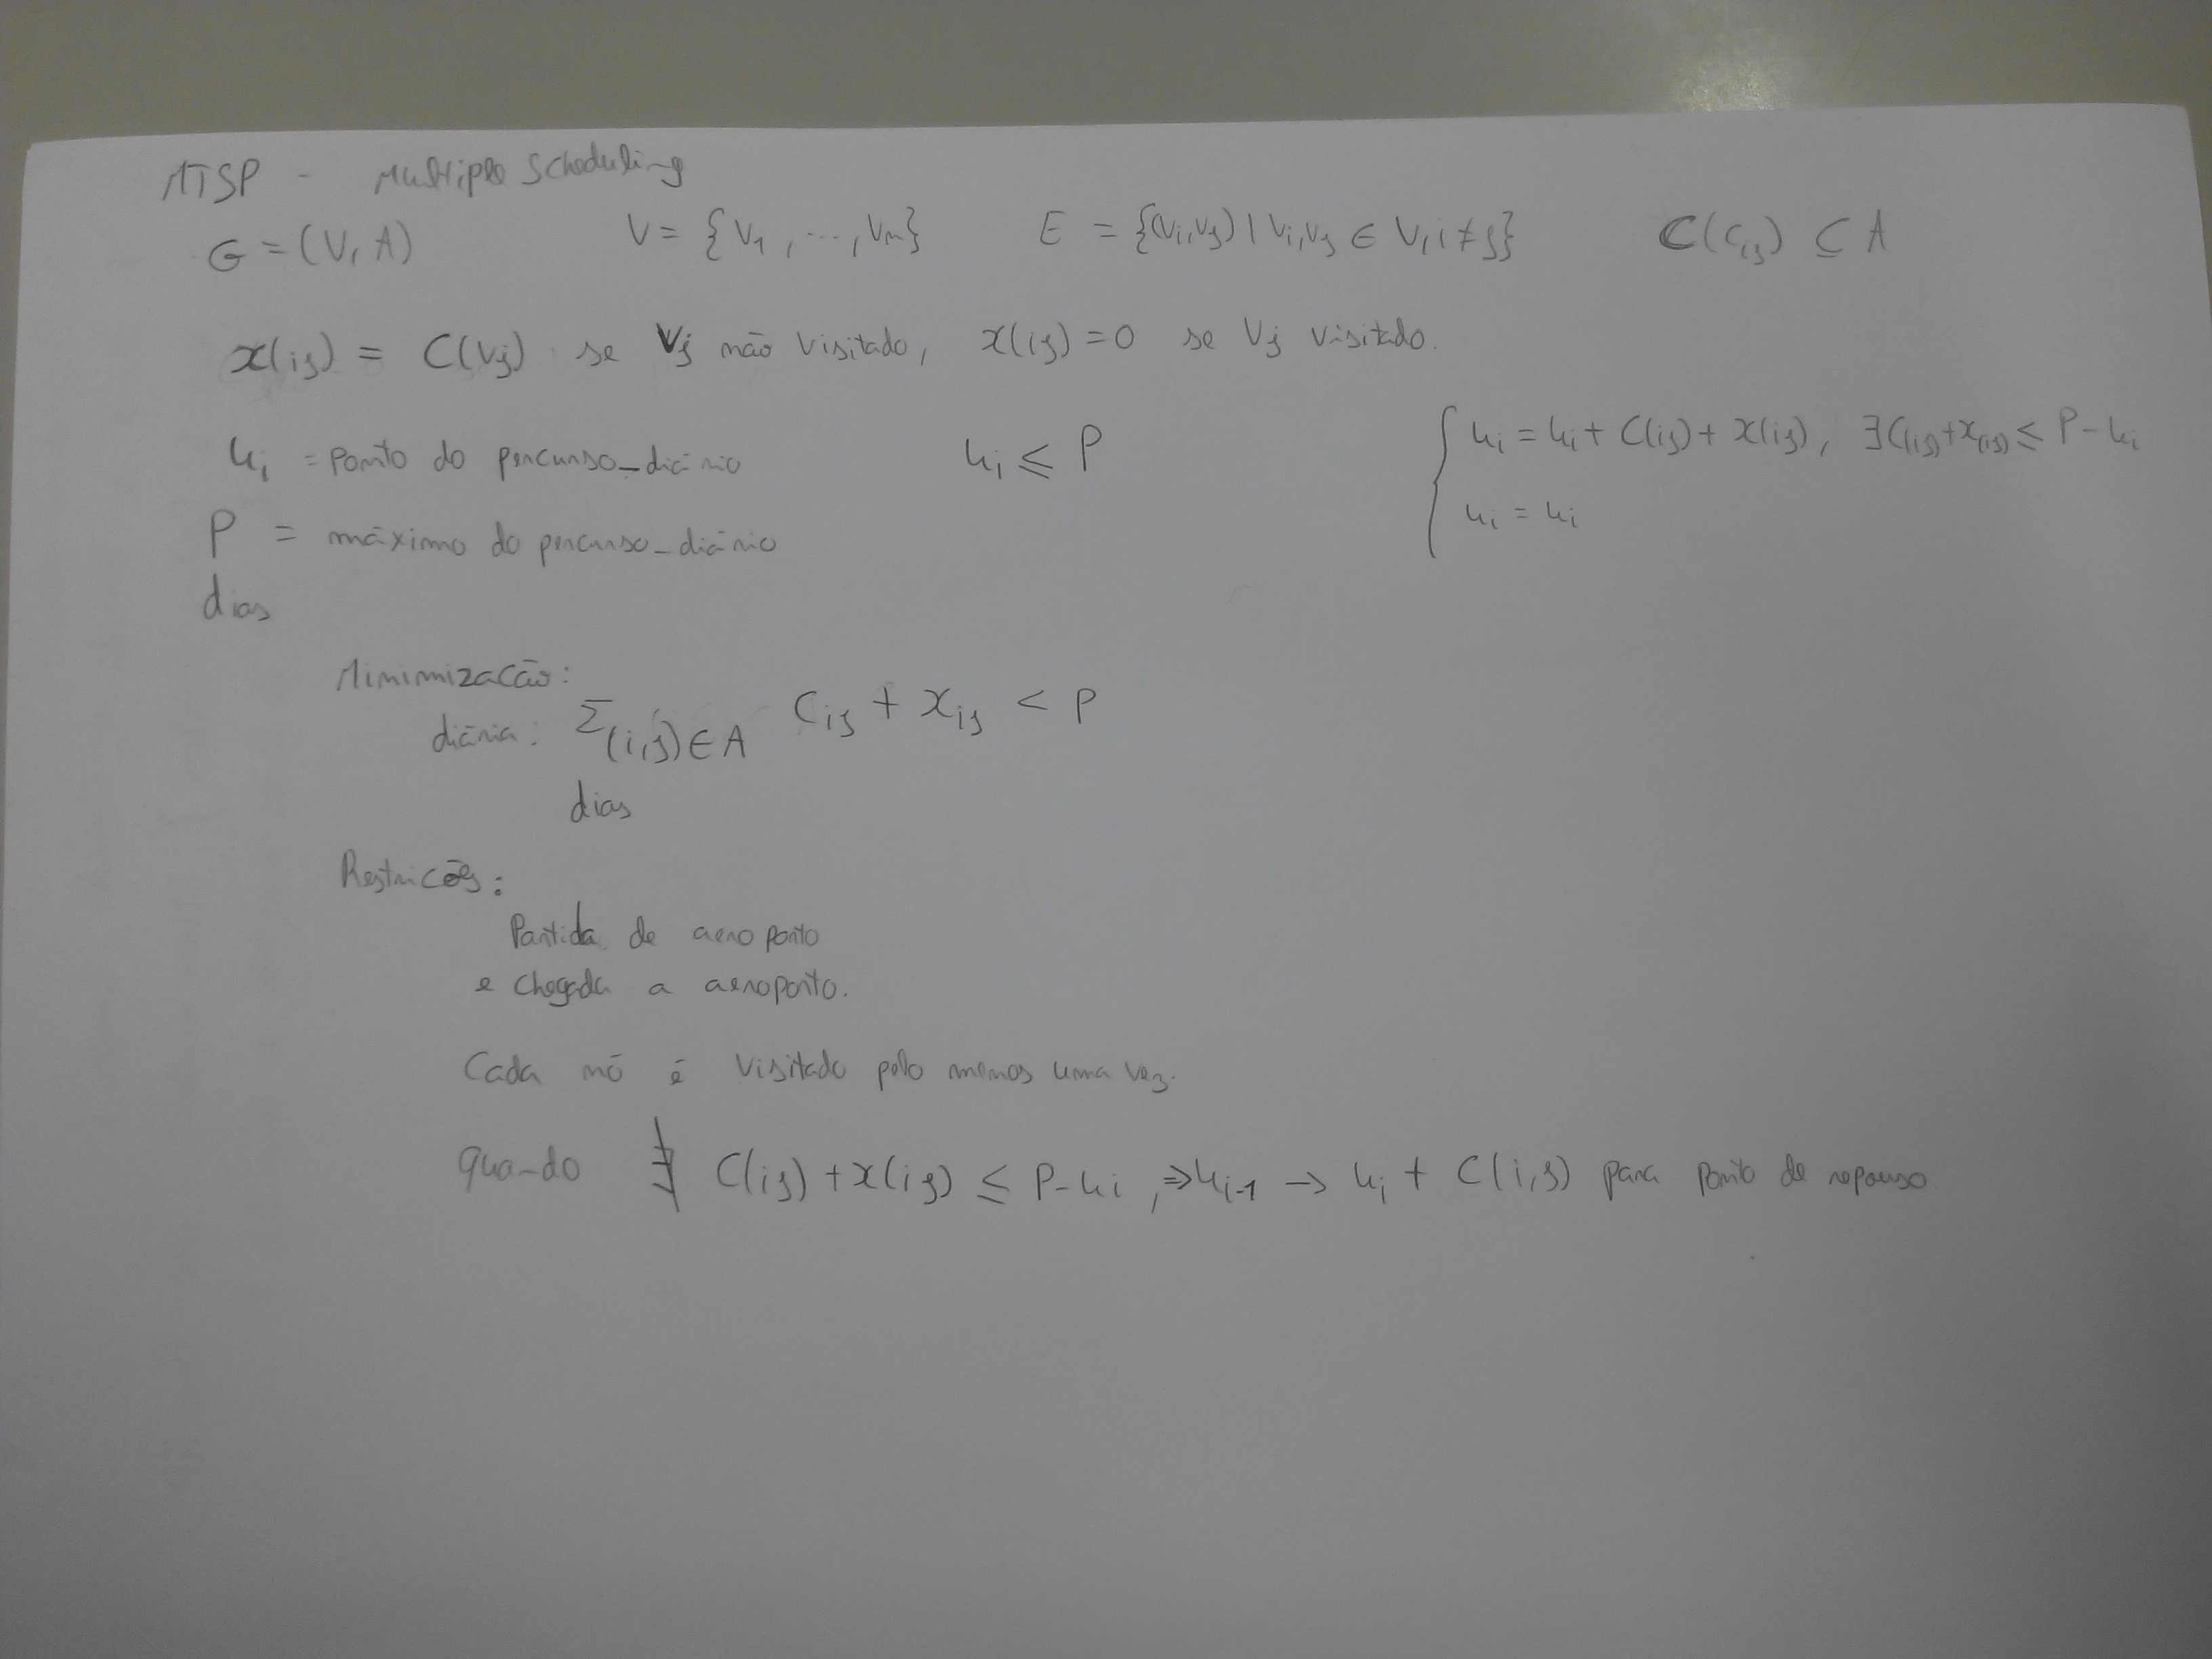 MTSP - Multiple Scheduling
G = (V, A) V = {V1, ..., Vn} E = {(Vi,Vj) | Vi,Vj ∈ V, i ≠ j} C(Cij) ⊆ A
x(ij) = C(Vj) se Vj não visitado, x(ij) = 0 se Vj visitado.
ui = ponto do percurso_diário ui ≤ P { ui = ui + C(ij) + x(ij), ∃ C(ij)+x(ij) ≤ P - ui
P = máximo do percurso_diário ui = ui
dias
Minimização:
diária: Σ(i,j) ∈ A Cij + xij < P
dias
Restrições:
Partida de aeroporto
e chegada a aeroporto.
Cada nó é visitado pelo menos uma vez.
quando ∄ C(ij) + x(ij) ≤ P - ui, ⇒ ui-1 → ui + C(i,j) para ponto de repouso